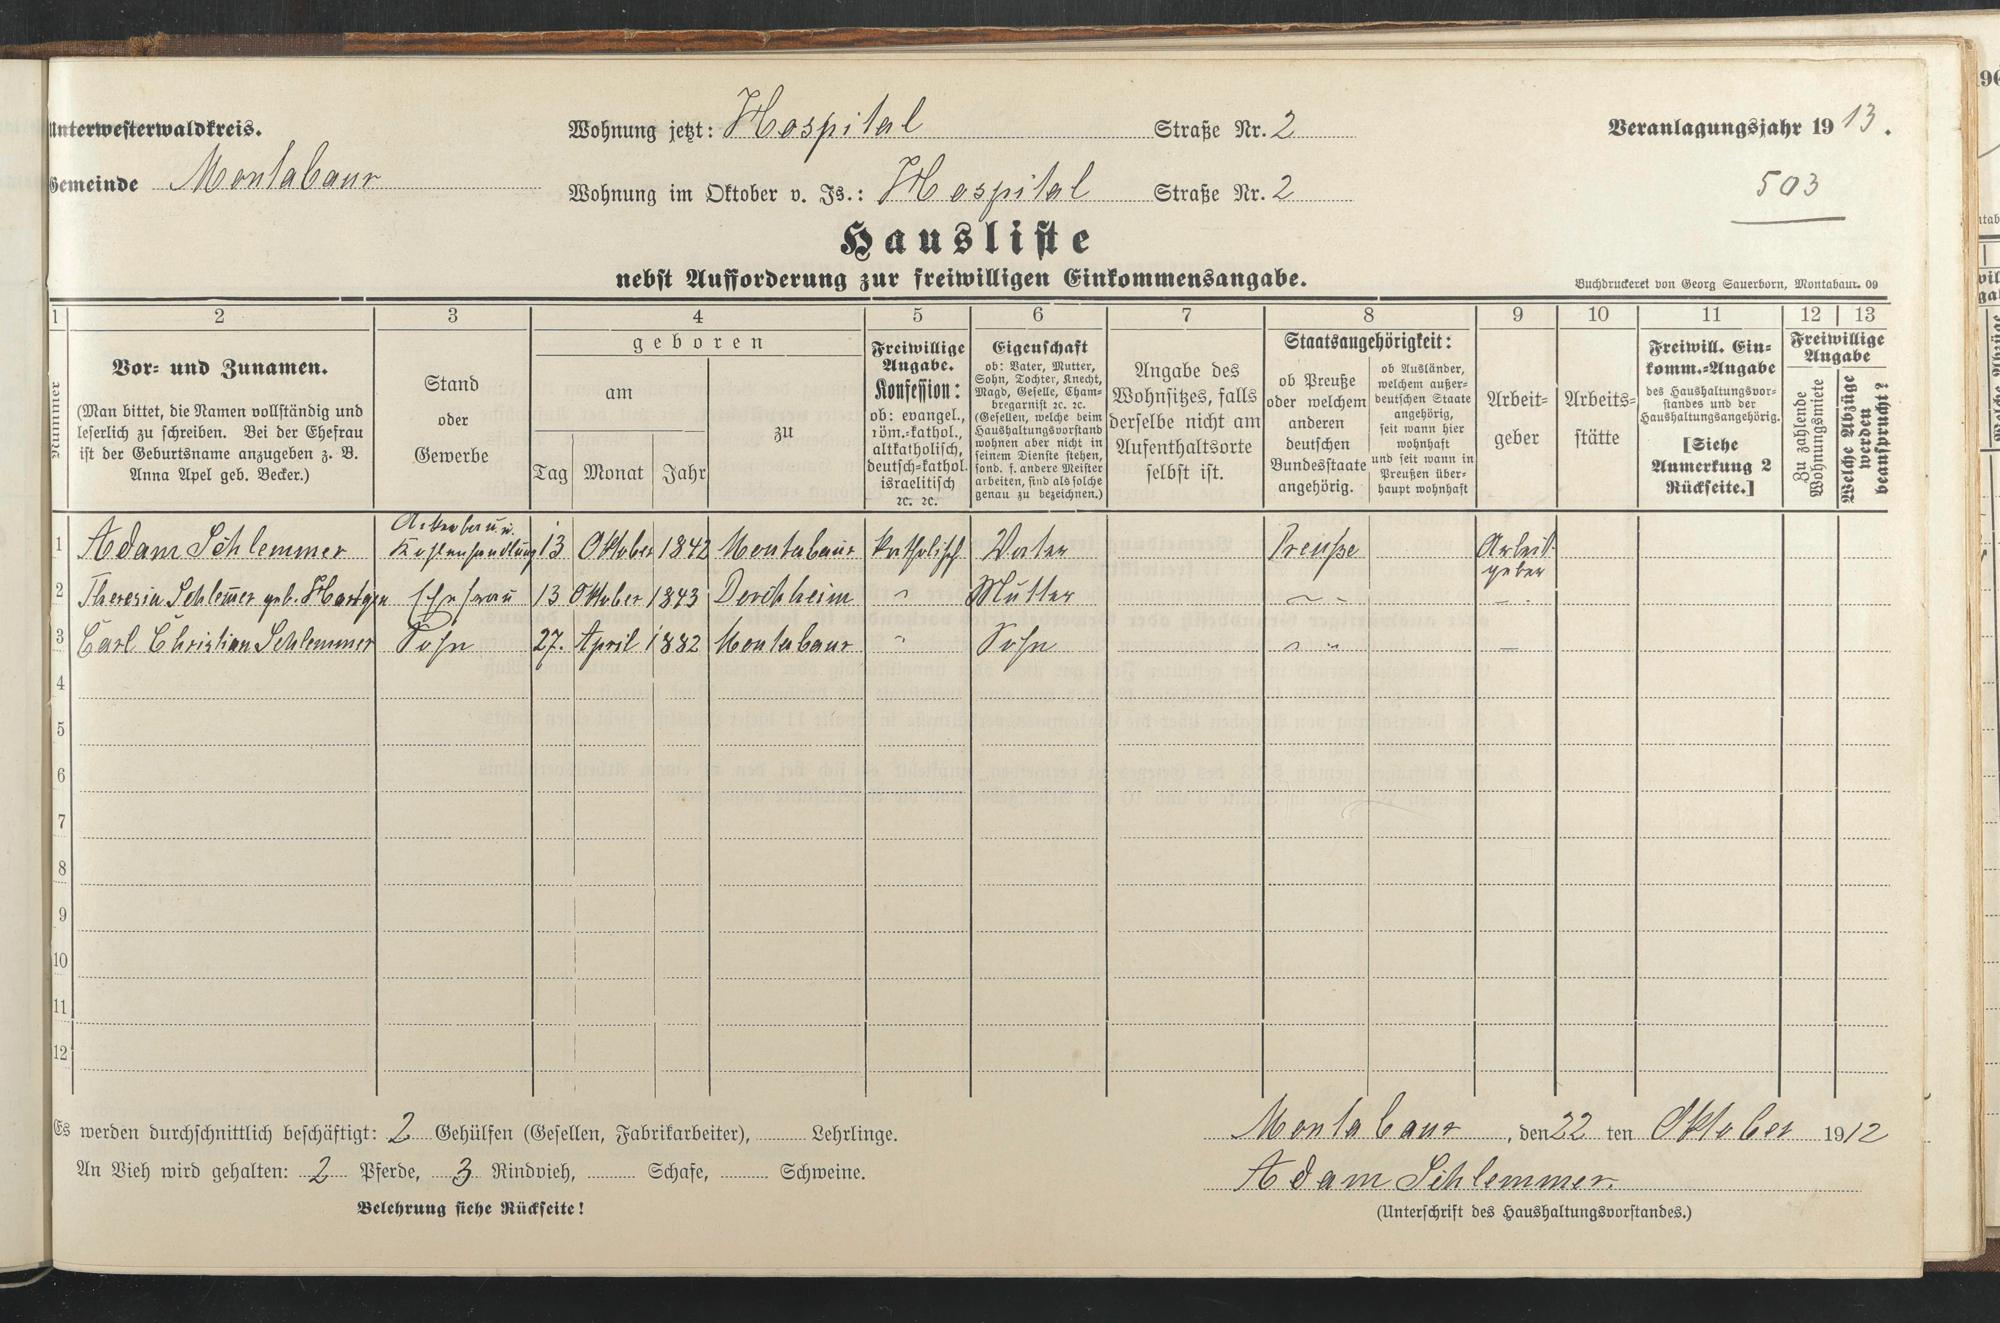 Unterwesterwaldkreis.
Wohnung jetzt: Hospital Straße Nr. 2
Veranlagungsjahr 1913.
Gemeinde Montabaur
Wohnung im Oktober v. Js.: Hospital Straße Nr. 2
503
Hausliste
nebst Aufforderung zur freiwilligen Einkommensangabe.
Buchdruckerei von Georg Sauerborn, Montabaur. 09
1 2 3 4 5 6 7 8 9 10 11 12 13
Nummer
Vor- und Zunamen.
(Man bittet, die Namen vollständig und
leserlich zu schreiben. Bei der Ehefrau
ist der Geburtsname anzugeben z. B.
Anna Apel geb. Becker.)
Stand
oder
Gewerbe
geboren
am
Tag Monat Jahr
zu
Freiwillige
Angabe.
Konfession:
ob: evangel.,
röm.-kathol.,
altkatholisch,
deutsch-kathol.
israelitisch
ꝛc. ꝛc.
Eigenschaft
ob: Vater, Mutter,
Sohn, Tochter, Knecht,
Magd, Geselle, Cham-
bregarnist ꝛc. ꝛc.
(Gesellen, welche beim
Haushaltungsvorstand
wohnen aber nicht in
seinem Dienste stehen,
sond. f. andere Meister
arbeiten, sind als solche
genau zu bezeichnen.)
Angabe des
Wohnsitzes, falls
derselbe nicht am
Aufenthaltsorte
selbst ist.
Staatsangehörigkeit:
ob Preuße
oder welchem
anderen
deutschen
Bundesstaate
angehörig.
ob Ausländer,
welchem außer-
deutschen Staate
angehörig,
seit wann hier
wohnhaft
und seit wann in
Preußen über-
haupt wohnhaft
Arbeit-
geber
Arbeits-
stätte
Freiwill. Ein-
komm.-Angabe
des Haushaltungsvor-
standes und der
Haushaltungsangehörig.
[Siehe
Anmerkung 2
Rückseite.]
Freiwillige
Angabe
Zu zahlende
Wohnungsmiete
Welche Abzüge
werden
beansprucht?
1 Adam Schlemmer Ackerbau u. Kohlenhandlung 13 Oktober 1842 Montabaur katholisch Vater Preuße Arbeitgeber
2 Theresia Schlem̄er geb. Ehefrau 13 Oktober 1843 " Mutter " " "
3 Carl Christian Schlemmer Sohn 27. April 1882 Montabaur " Sohn " " "
4
5
6
7
8
9
10
11
12
Es werden durchschnittlich beschäftigt: 2 Gehülfen (Gesellen, Fabrikarbeiter), Lehrlinge.
An Vieh wird gehalten: 2 Pferde, 3 Rindvieh, Schafe, Schweine.
Belehrung siehe Rückseite!
Montabaur, den 22 ten Oktober 1912
Adam Schlemmer.
(Unterschrift des Haushaltungsvorstandes.)